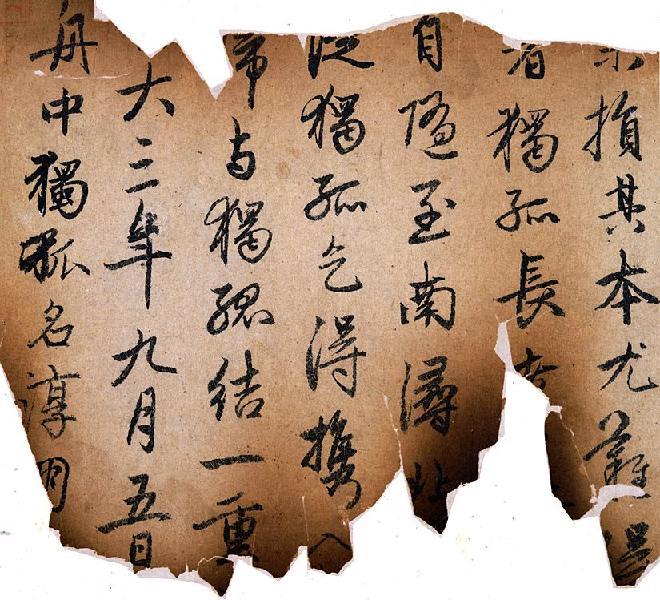 損其本尤難得
者獨孤長老
自隨至南潯北
從獨孤乞得攜入
与獨孤結一重
大三年九月五日
舟中獨孤名淳朋